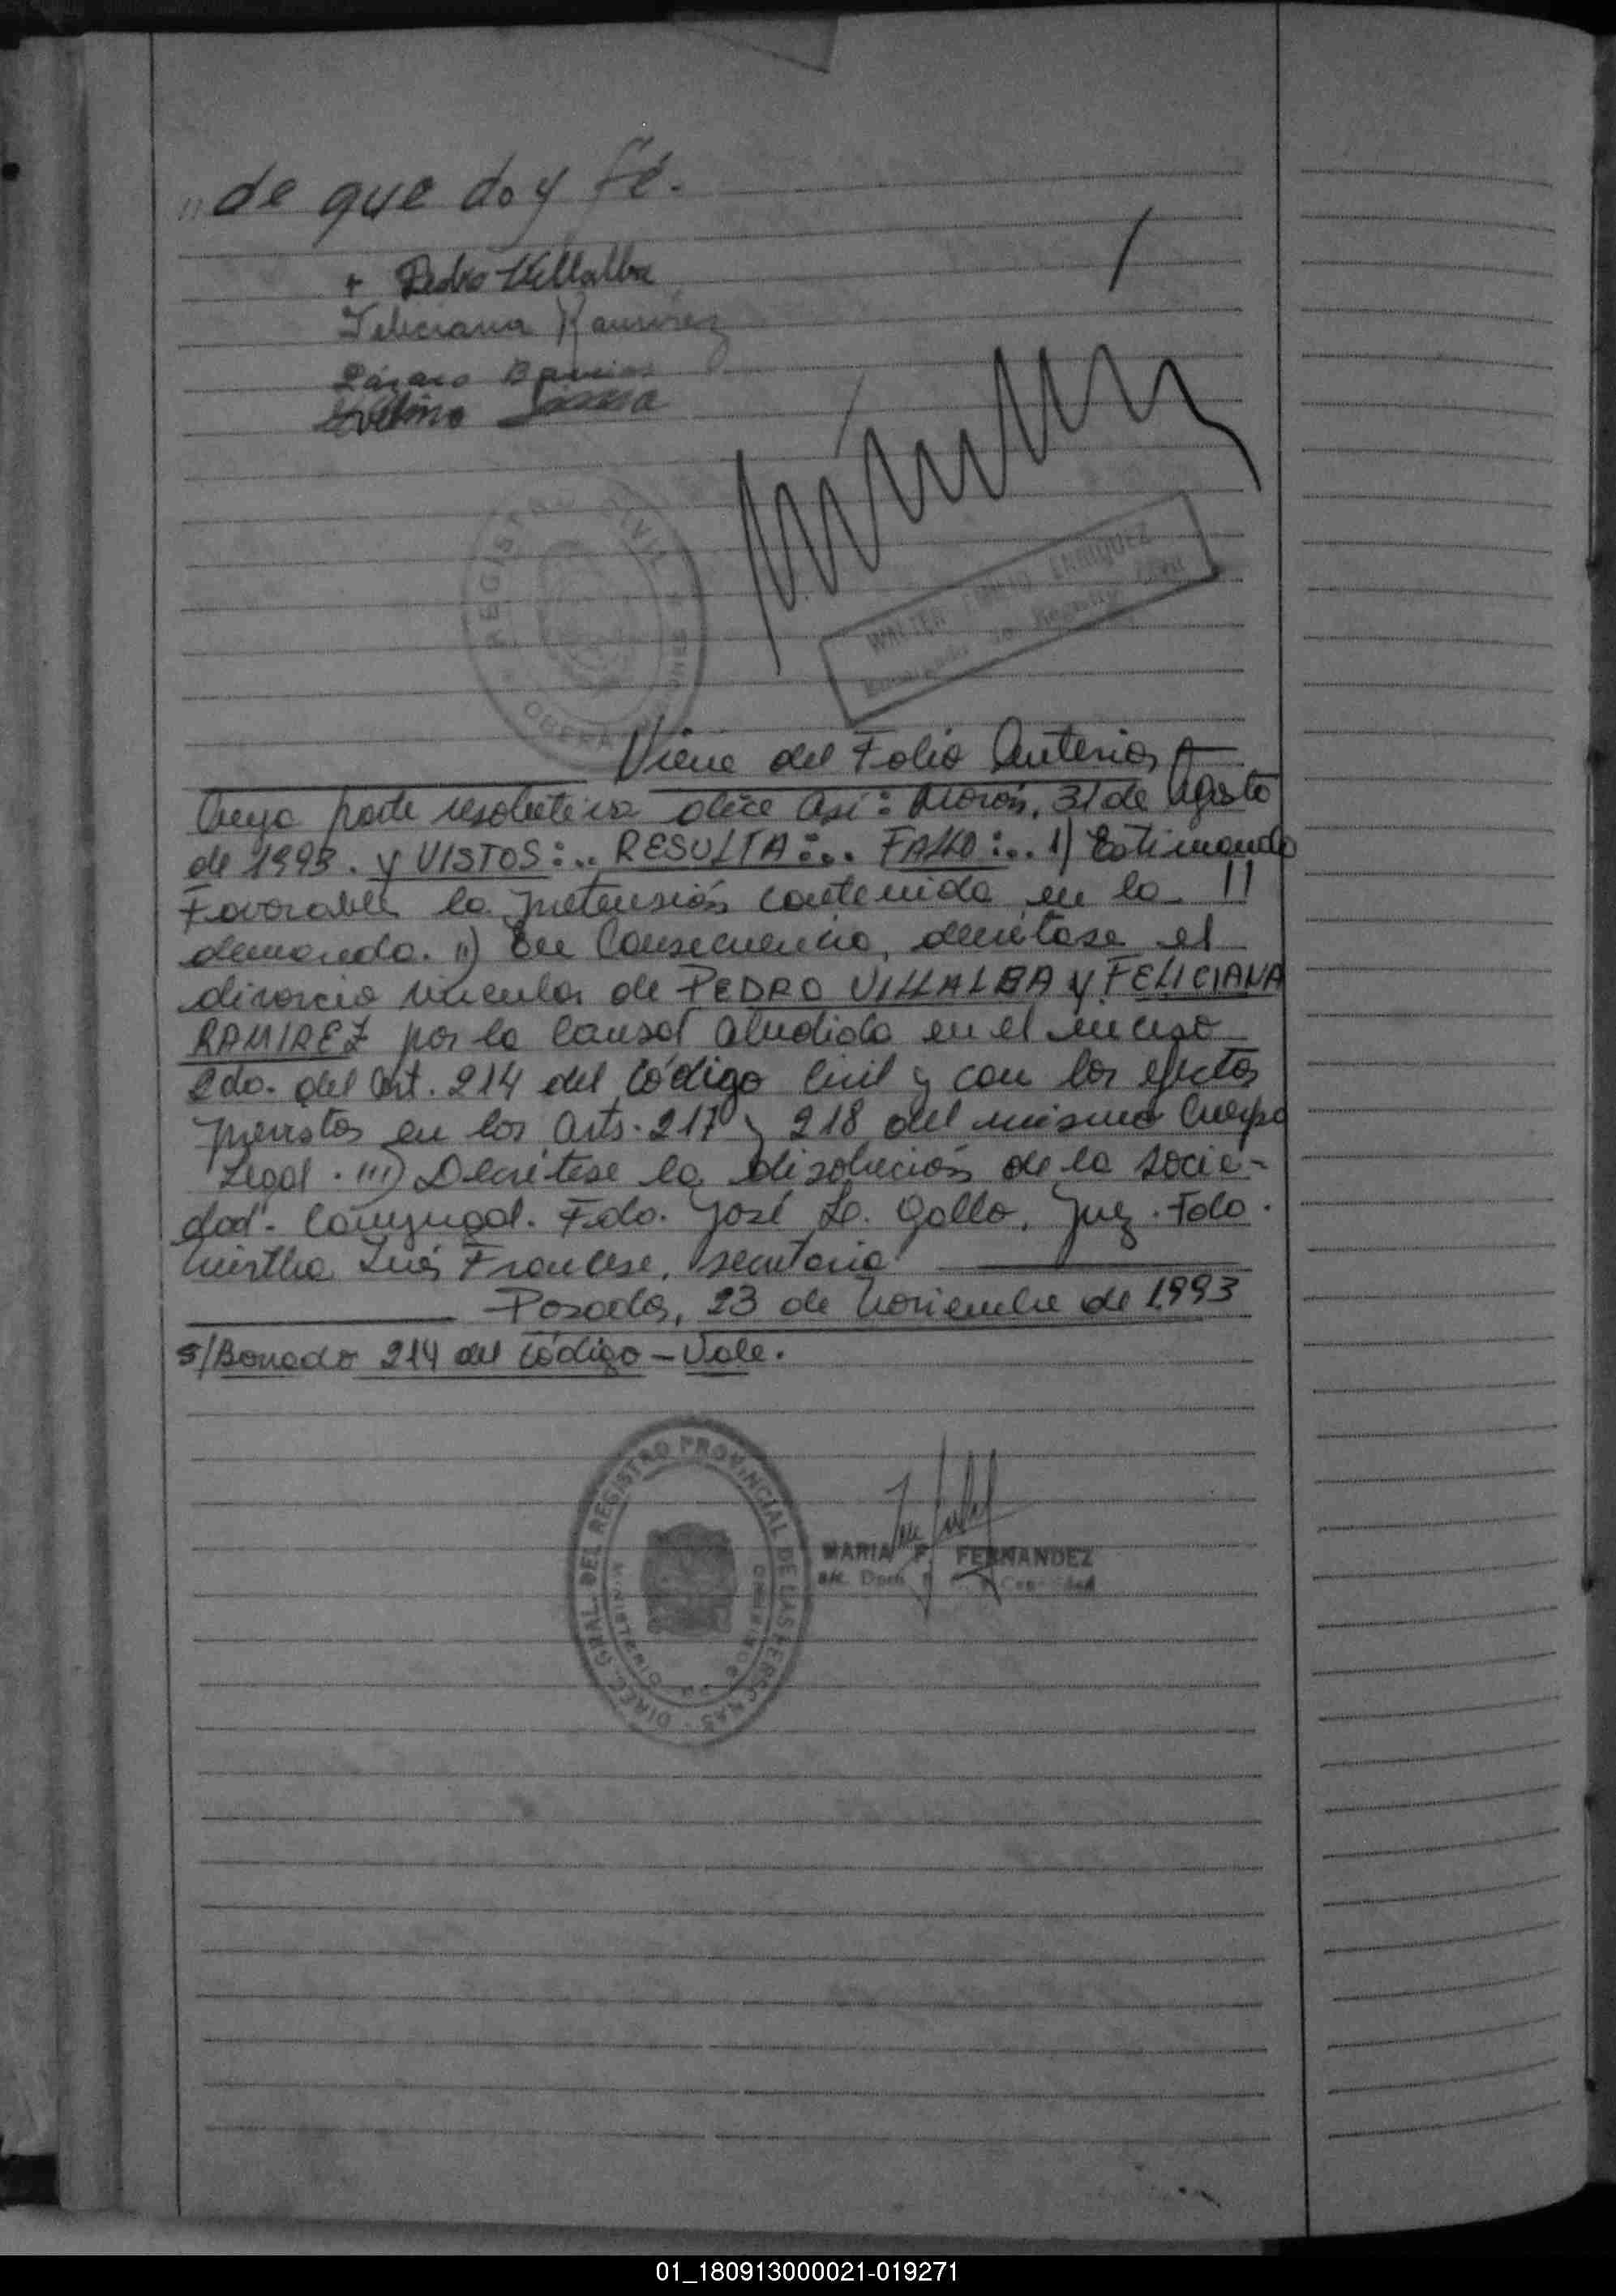 " de que doy fé.
+ Pedro Villalba
Feliciana Ramírez
Lázaro
REGISTRO CIVIL
OBERA MISIONES
WALTER ENRIQUEZ
Encargado Registro Civil
Viene del Folio Anterior
Cuya parte resolutiva dice así: Morón, 31 de Agosto
de 1993. y VISTOS:.. RESULTA:.. FALLO:.. 1) Estimando
Favorable la pretensión contenida en la ||
demanda. II) En Consecuencia, decrétase el
divorcio vincular de PEDRO VILLALBA y FELICIANA
RAMIREZ por la causal aludida en el inciso
2do. del Art. 214 del Código Civil y con los efectos
previstos en los Arts. 217 y 218 del mismo Cuerpo
Legal. III) Decrétese la disolución de la socie-
dad. Conyugal. Fdo. José L. Gallo, Juez. Fdo.
Mirtha Inés Francese, secretaria
Posadas, 23 de Noviembre de 1993
s/Borrado 214 del Código - Vale.
DIREC. GRAL. DEL REGISTRO PROVINCIAL DE LAS PERSONAS
MARIA F. FERNANDEZ
01_180913000021-019271